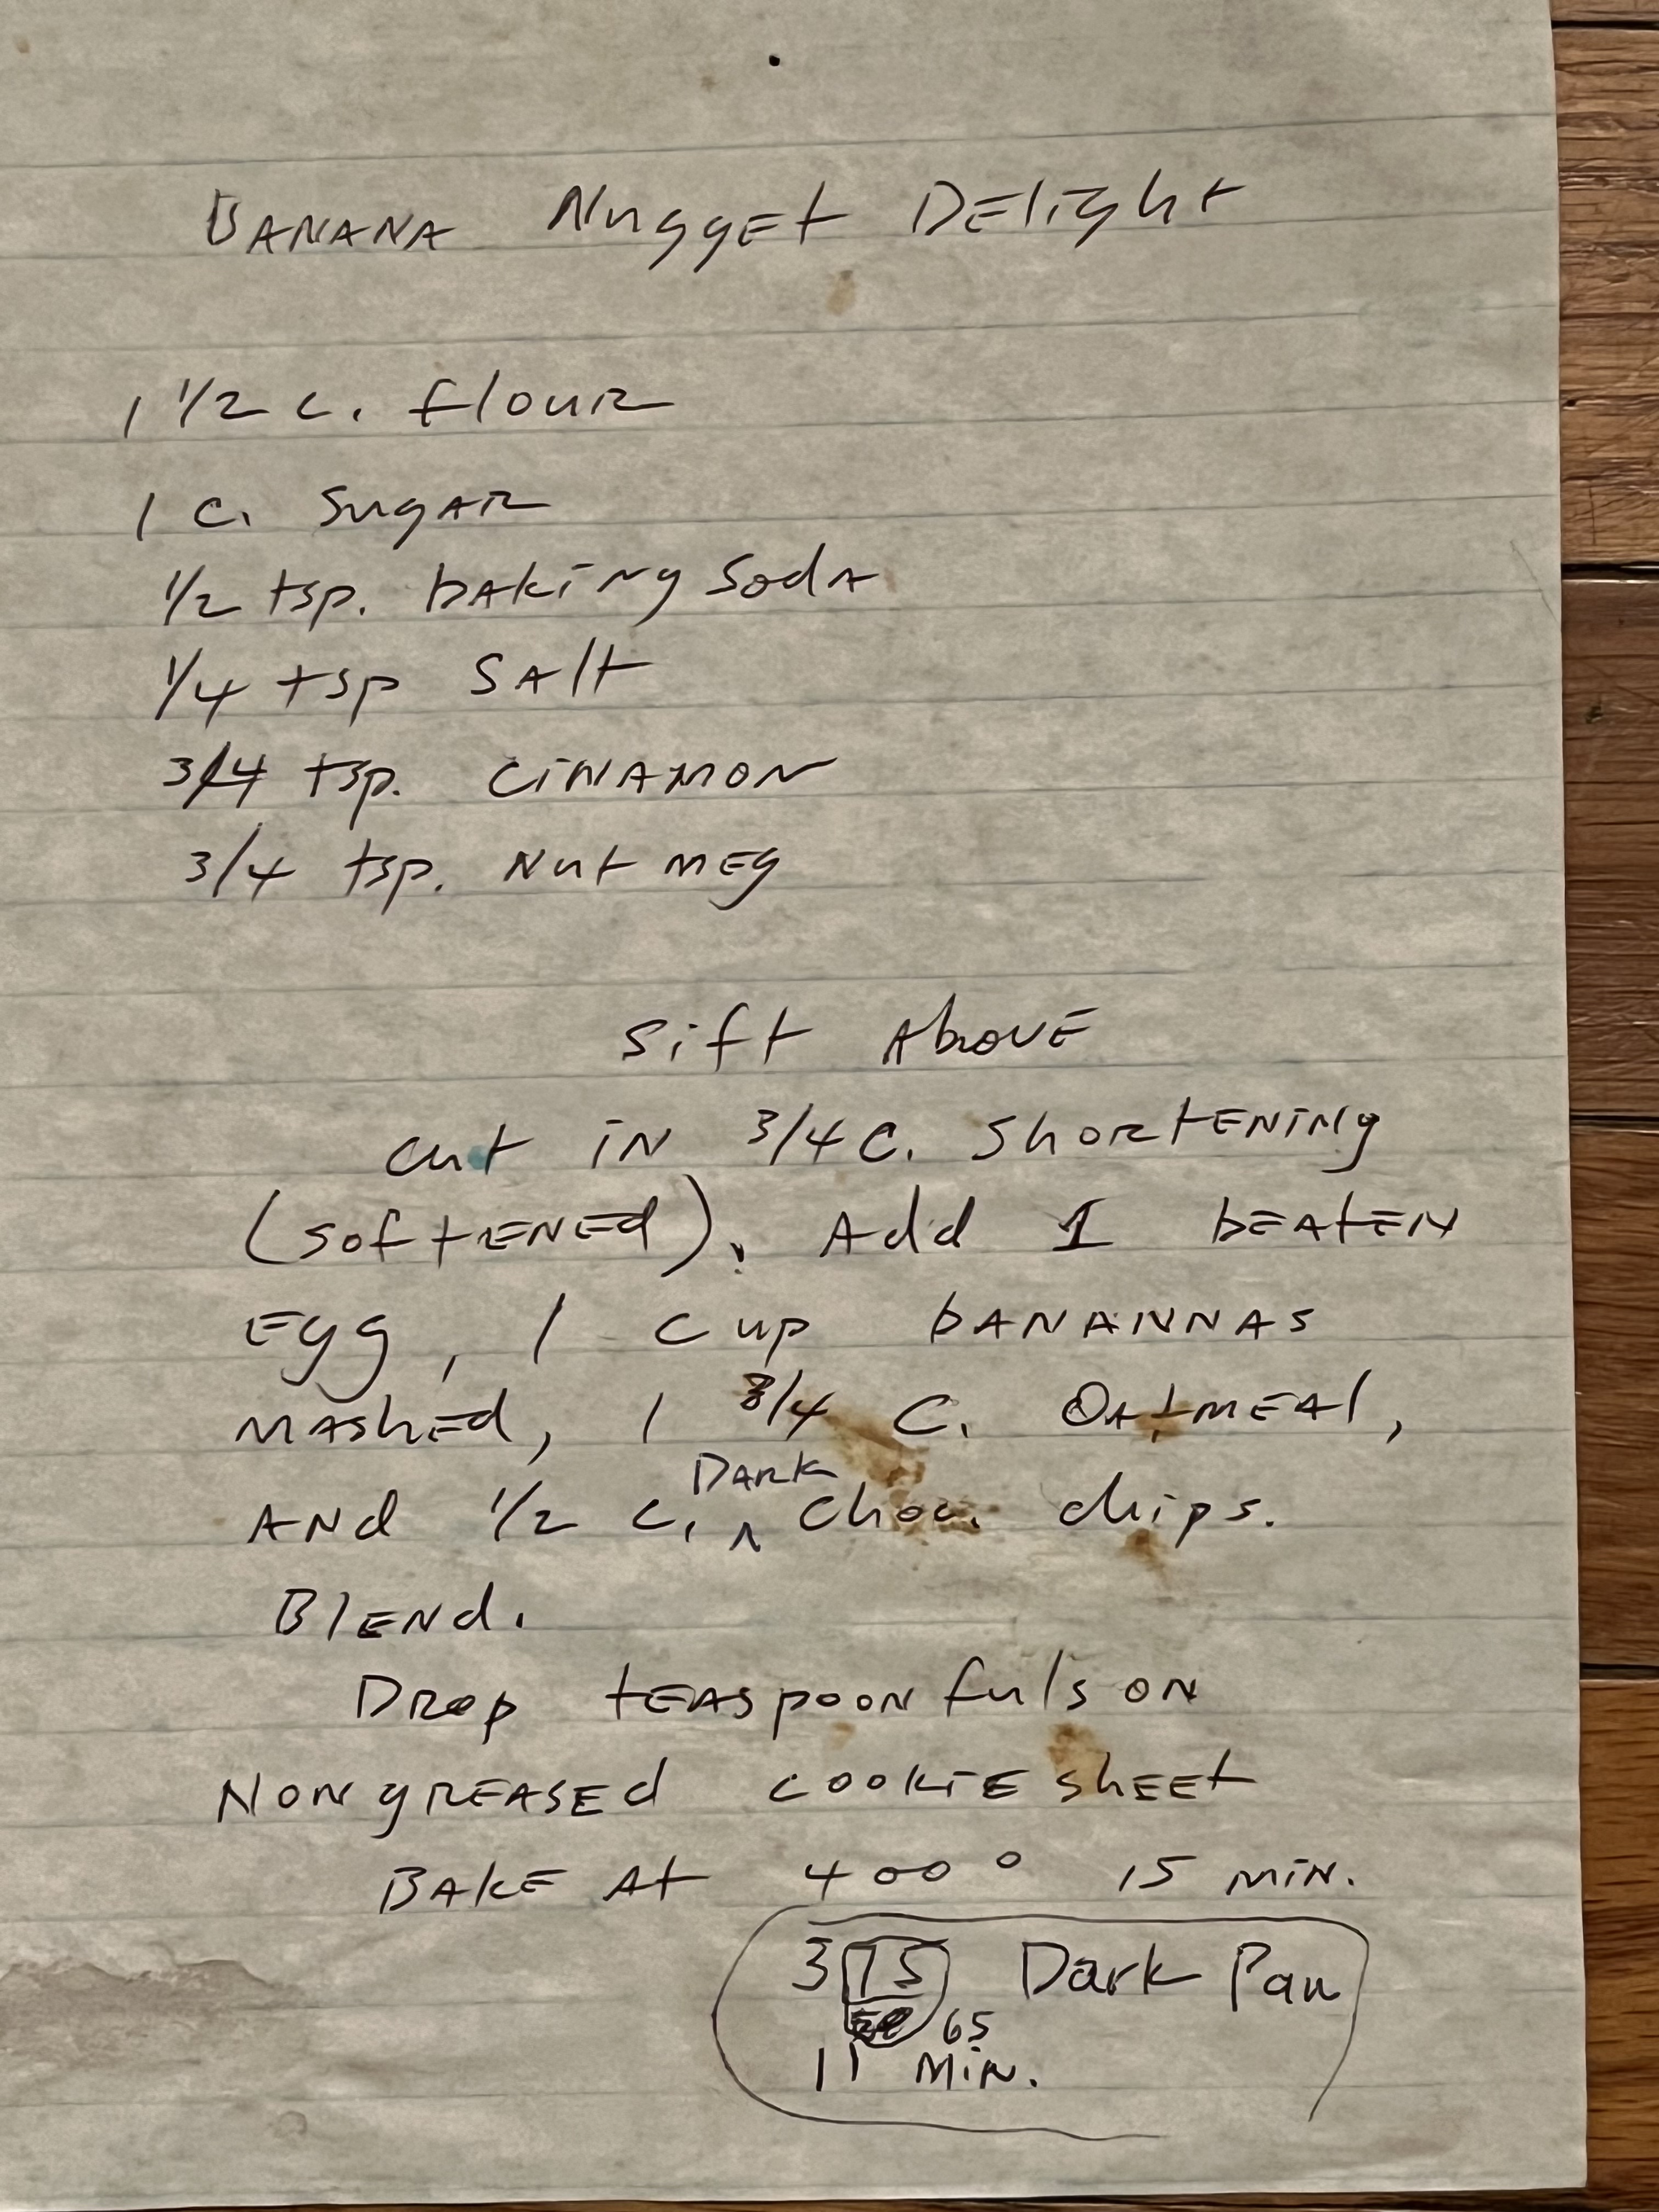 BANANA NuggEt DElight
1 1/2 c. flouR
1 c. SugAR
1/2 tsp. bAkiNg SodA
1/4 tsp SAlt
3/4 tsp. CiNAMON
3/4 tsp. Nut mEg
Sift AbovE
cut iN 3/4 C. ShoRtENiNg
(softENEd). Add 1 bEAtEN
Egg, 1 cup bANANNAS
MAShEd, 1 3/4 C. OAtmEAl,
DARk
ANd 1/2 C. ^ Choc. chips.
BlENd.
DRop tEASpooNfuls oN
NoNgREASEd cookiE shEEt
BAkE At 400° 15 MiN.
375 Dark Pan
65
11 MiN.